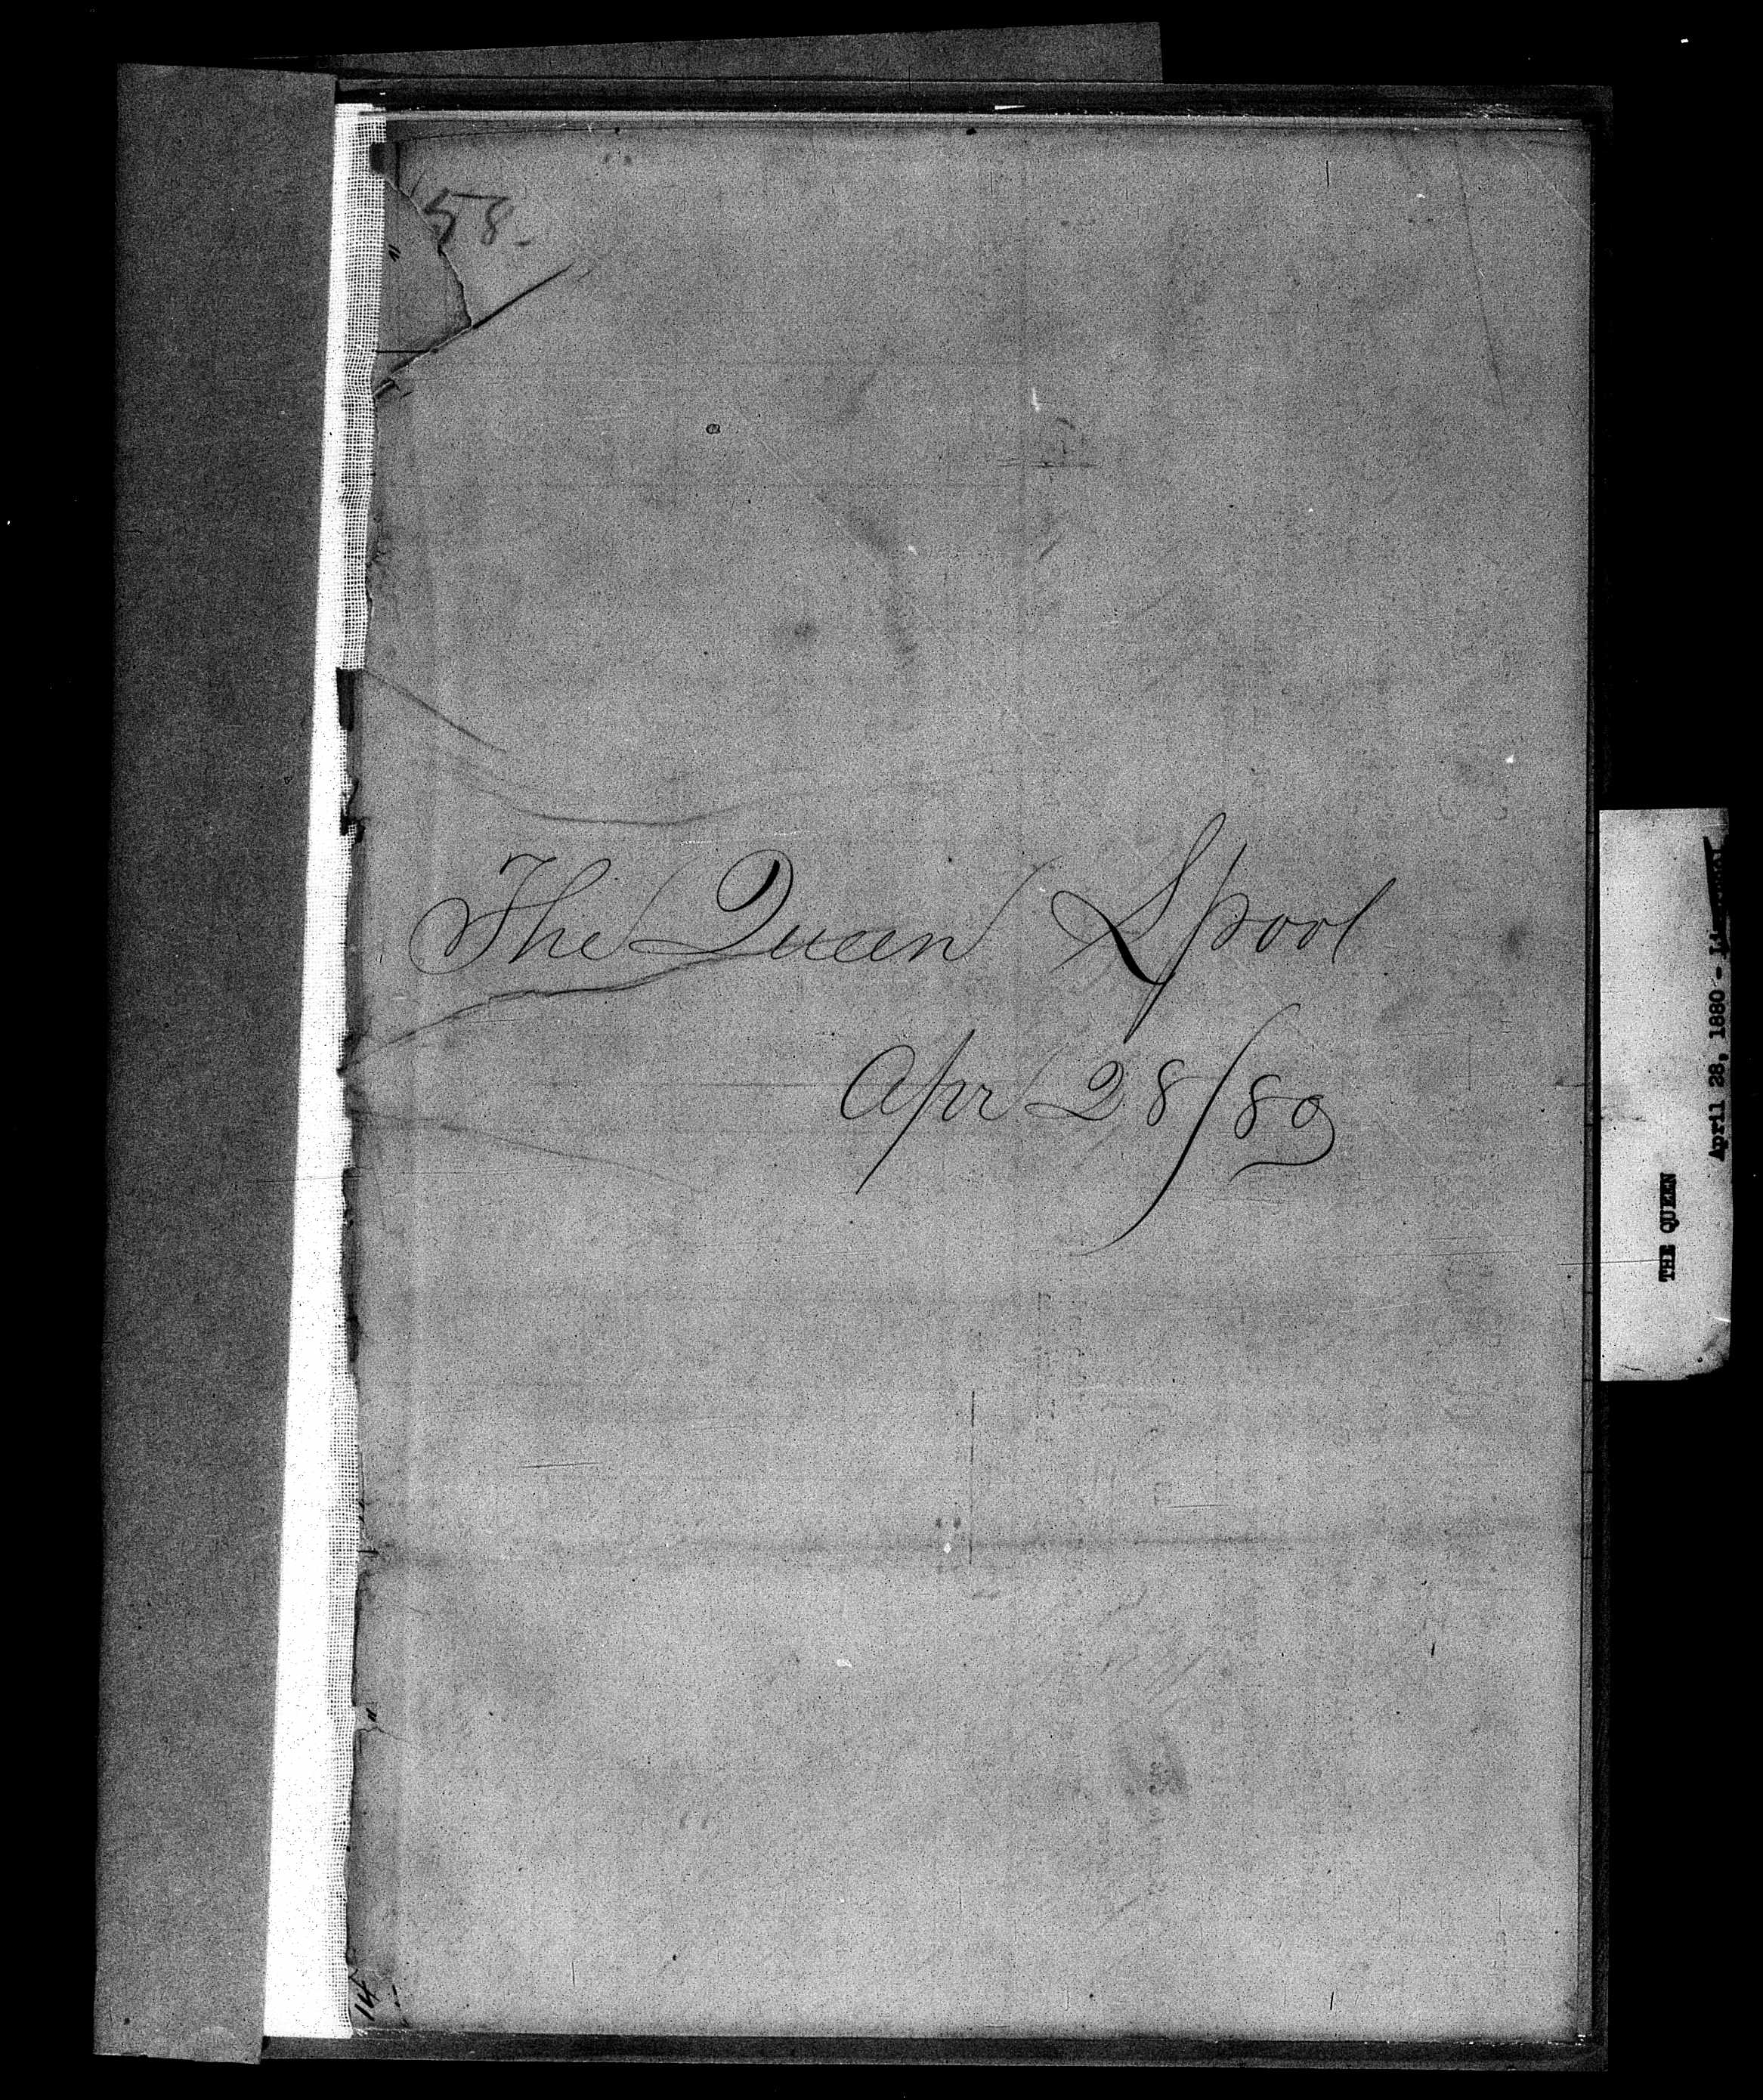 58.
The Queen Lpool
Apr 28/80
14
THE QUEEN
April 28, 1880 -